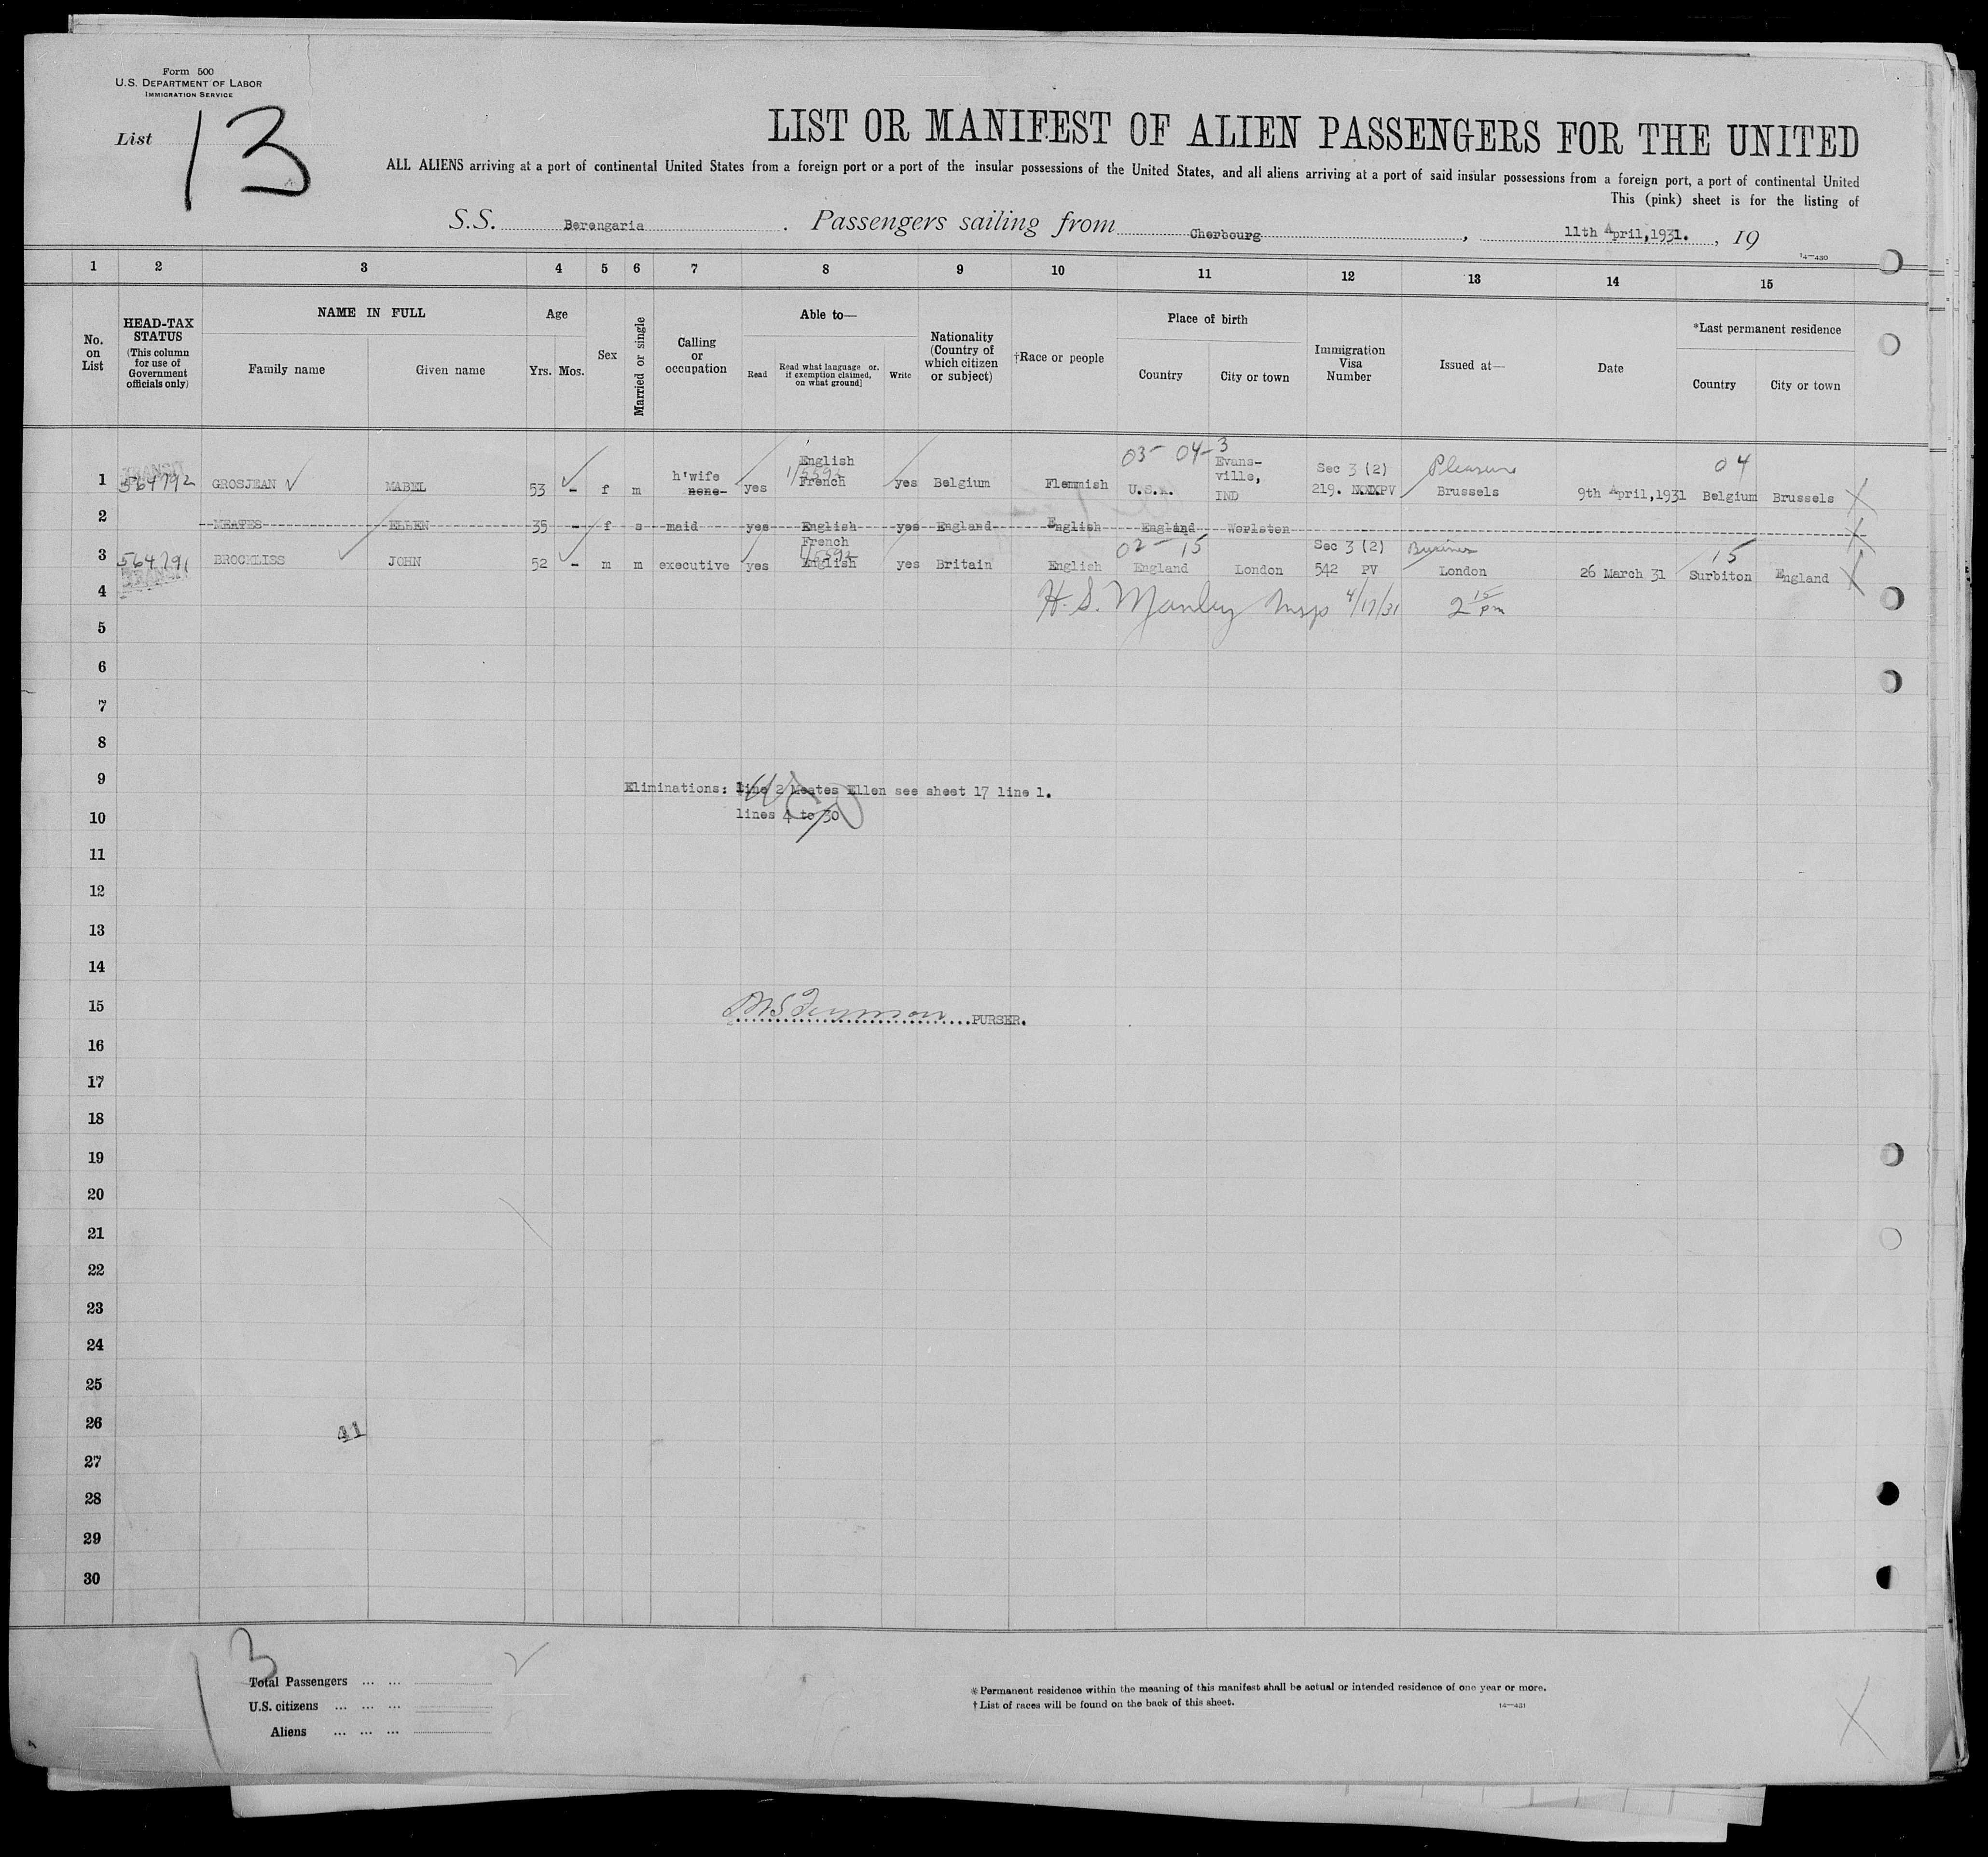 Form 500
U.S. DEPARTMENT OF LABOR
IMMIGRATION SERVICE
List 13
LIST OR MANIFEST OF ALIEN PASSENGERS FOR THE UNITED
ALL ALIENS arriving at a port of continental United States from a foreign port or a port of the insular possessions of the United States, and all aliens arriving at a port of said insular possessions from a foreign port, a port of continental United
This (pink) sheet is for the listing of
S.S. Berengaria. Passengers sailing from Cherbourg, 11th April,1931., 19
14-430
1 2 3 4 5 6 7 8 9 10 11 12 13 14 15
No. on List
HEAD-TAX STATUS (This column for use of Government officials only)
NAME IN FULL
Family name Given name
Age
Yrs. Mos.
Sex
Married or single
Calling or occupation
Able to—
Read Read what language or, if exemption claimed, on what ground] Write
Nationality (Country of which citizen or subject)
†Race or people
Place of birth
Country City or town
Immigration Visa Number
Issued at—
Date
*Last permanent residence
Country City or town
03- 04-3
English Evans- Sec 3 (2) Pleasure 04
TRANSIT h'wife 1/5592 ville,
1 564792 GROSJEAN MABEL 53 - f m none- yes French yes Belgium Flemmish U.S.A. IND 219. PV Brussels 9th April,1931 Belgium Brussels X
2 MEATES ELLEN 35 - f s maid yes English yes England English England Worlsten X
French 02- 15 Sec 3 (2) Business 15
1/5592
3 564791 BROCKLISS JOHN 52 - m m executive yes English yes Britain English England London 542 PV London 26 March 31 Surbiton England X
TRANSIT
4 H.S. Manley Insp 4/17/31 2 15 pm
5
6
7
8
9 Eliminations: line 2 Meates Ellen see sheet 17 line 1.
10 lines 4 to 30
11
12
13
14
15 PURSER.
16
17
18
19
20
21
22
23
24
25
26 41
27
28
29
30
3
Total Passengers ... ...
U.S. citizens ... ... ...
Aliens ... ... ...
*Permanent residence within the meaning of this manifest shall be actual or intended residence of one year or more.
†List of races will be found on the back of this sheet.
14-431
X